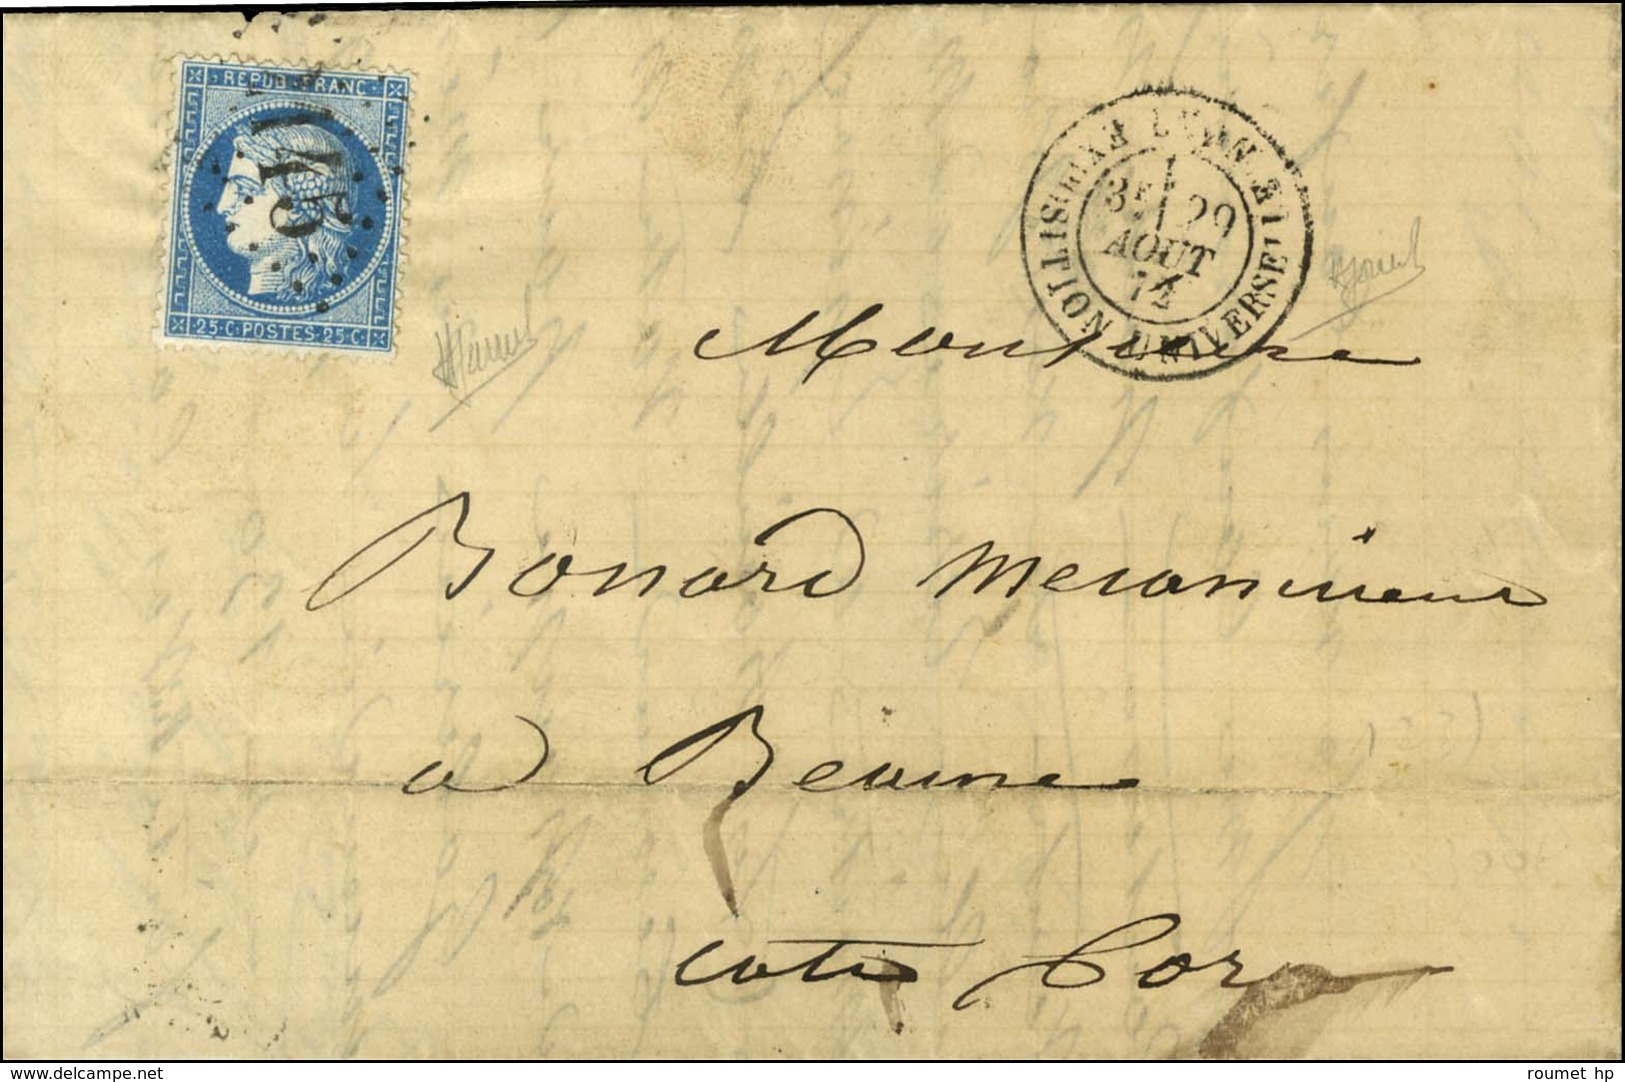 REPUB FRANC
25·C·POSTES·25·C
LYON
3E 29
AOUT
EXPOSITION UNIVERSELLE
Monsieur
Bonnard Mecanicien
a Beaune
cote d'or
www.delcampe.net
roumet hp